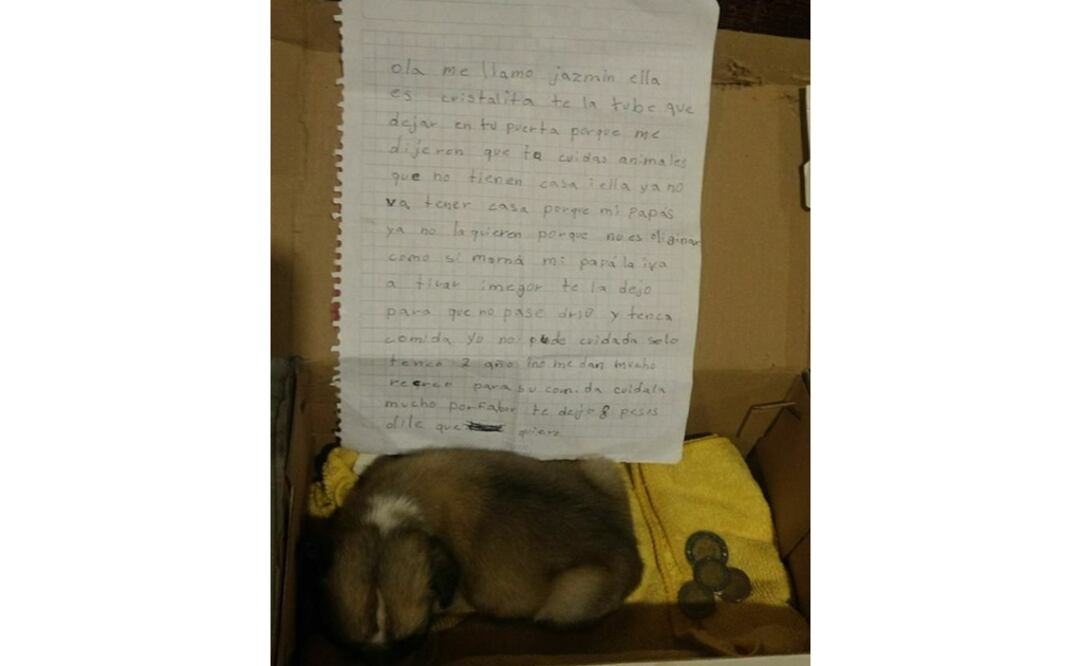 ola me llamo jazmin ella
es cristalita te la tube que
dejar en tu puerta porque me
dijeron que tu cuidas animales
que no tienen casa i ella ya no
va tener casa porque mi papás
ya no la quieren porque no es oliginar
como si mamá mi papá la iva
a tirar imegor te la dejo
para que no pase drio y tenca
comida yo no puedo cuidada solo
tenco 2 año no me dan mucho
recreo para su comida cuidala
mucho porfabor te dejo 8 pesos
dile que quiero